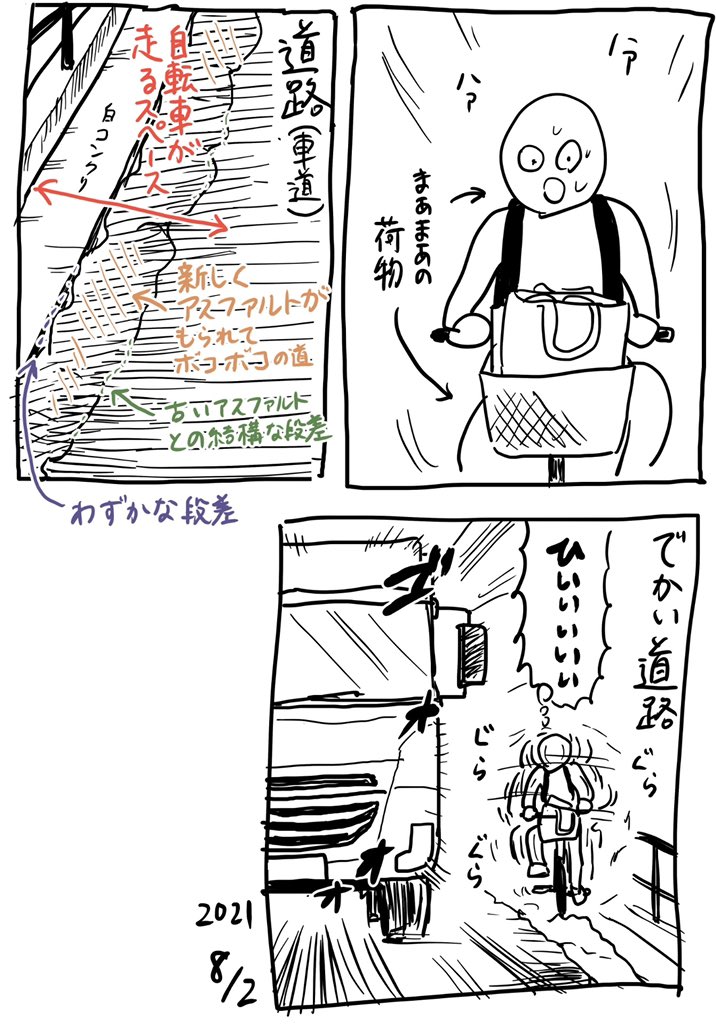 ハァ
ハァ
まあまあの
荷物
道路(車道)
自転車が
走るスペース
白コンクリ
新しく
アスファルトが
もられて
ボコボコの道
古いアスファルト
との結構な段差
わずかな段差
でかい道路
ひぃぃぃぃぃ
ぐら
ぐら
ぐら
ブオオオ
2021
8/2